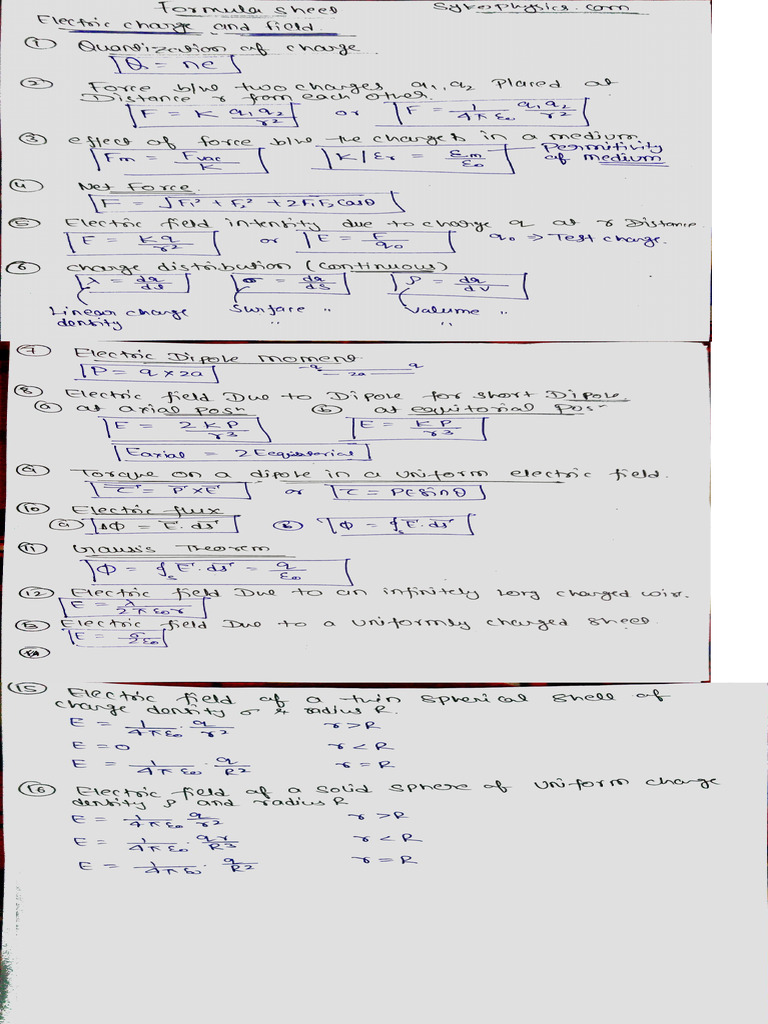 Formula sheet
SykoPhysics.com
Electric charge and field
① Quantization of charge
Q = ne
② Force b/w two charges q₁, q₂ Placed at
Distance r from each other.
F = K q₁q₂/r² or F = 1/4πε₀ q₁q₂/r²
③ effect of force b/w the charges in a medium
Fm = Fvac/K K/εr = εm/ε₀ → Permitivity of medium
④ Net Force
F = √F₁² + F₂² + 2F₁F₂cosθ
⑤ Electric field intensity due to charge q at r Distance
E = Kq/r² or E = F/q₀ q₀ ⇒ Test charge.
⑥ charge distribution (continuous)
λ = dq/dl σ = dq/ds ρ = dq/dv
Linear charge density Surface " " volume " "
⑦ Electric Dipole moment
P = q × 2a -q 2a q
⑧ Electric field Due to Dipole for short Dipole.
ⓐ at axial posⁿ ⓑ at equitorial posⁿ
E = 2KP/r³ E = KP/r³
Eaxial = 2Eequitorial
⑨ Torque on a dipole in a uniform electric field.
τ⃗ = P⃗ × E⃗ or τ = PE sinθ
⑩ Electric flux
ⓐ ΔΦ = E⃗. ds⃗ ⓑ Φ = ∮s E⃗. ds⃗
⑪ Gauss's Theorem
Φ = ∮s E⃗. ds⃗ = q/ε₀
⑫ Electric field Due to an infinitely long charged wire.
E = λ/2πε₀r
⑬ Electric field Due to a uniformly charged sheet.
E = σ/2ε₀
⑮ Electric field of a thin spherical shell of
charge density σ & radius R.
E = 1/4πε₀ . q/r² r > R
E = 0 r < R
E = 1/4πε₀ . q/R² r = R
⑯ Electric field of a solid sphere of uniform charge
density ρ and radius R
E = 1/4πε₀ . q/r² r > R
E = 1/4πε₀ . qr/R³ r < R
E = 1/4πε₀ . q/R² r = R